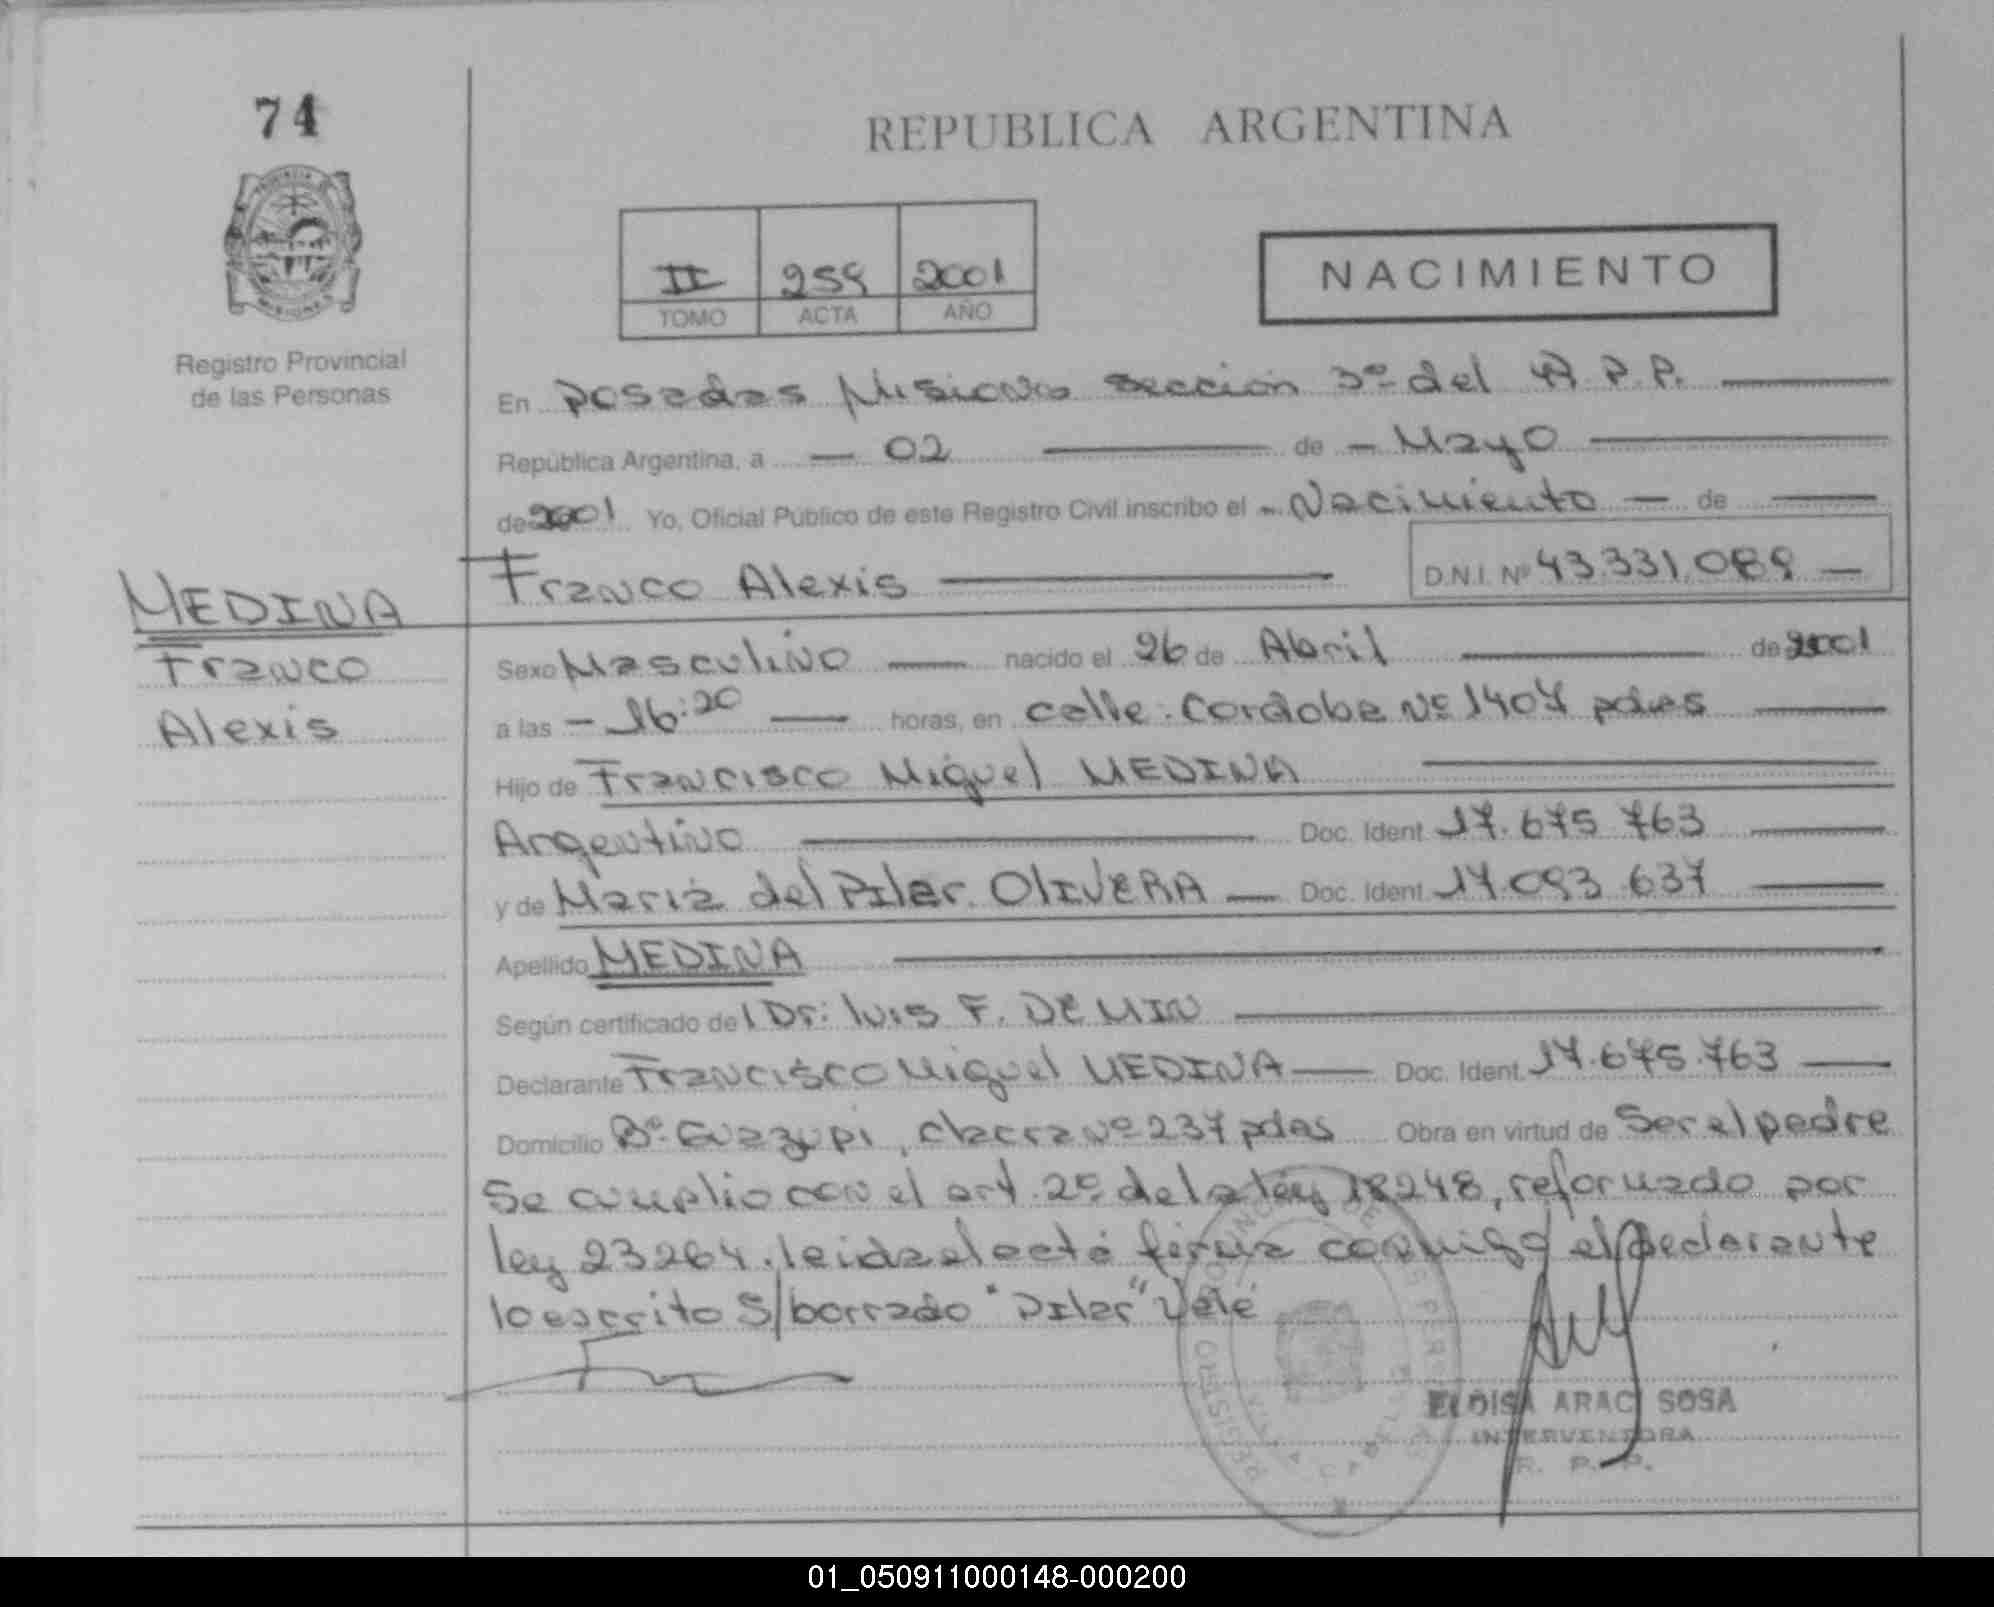 74
REPUBLICA ARGENTINA
II 259 2001
TOMO ACTA AÑO
NACIMIENTO
Registro Provincial
de las Personas
En Posadas Misiones sección 3º del R.P.P.
República Argentina, a 02 de Mayo
de 2001 Yo, Oficial Público de este Registro Civil inscribo el Nacimiento de
Franco Alexis D.N.I. Nº 43.331.089
MEDINA
Franco
Alexis
Sexo Masculino nacido el 26 de Abril de 2001
a las 16:20 horas, en calle: Cordoba Nº 1407 pdas
Hijo de Francisco Miguel MEDINA
Argentino Doc. Ident. 17.675 763
y de María del Pilar OLIVERA Doc. Ident. 17.093 637
Apellido MEDINA
Según certificado del Dr: Luis F. DEMIN
Declarante Francisco Miguel MEDINA Doc. Ident. 17.675.763
Domicilio Bº Guazupi, chacra Nº 237 pdas Obra en virtud de Ser el padre
Se cumplio con el art. 2º de la ley 18248, reformado por
ley 23264. leida el acta firma conmigo el declarante
lo escrito S/borrado "Pilar" Vale
ELOISA ARACI SOSA
INTERVENTORA
R. P. P.
01_050911000148-000200